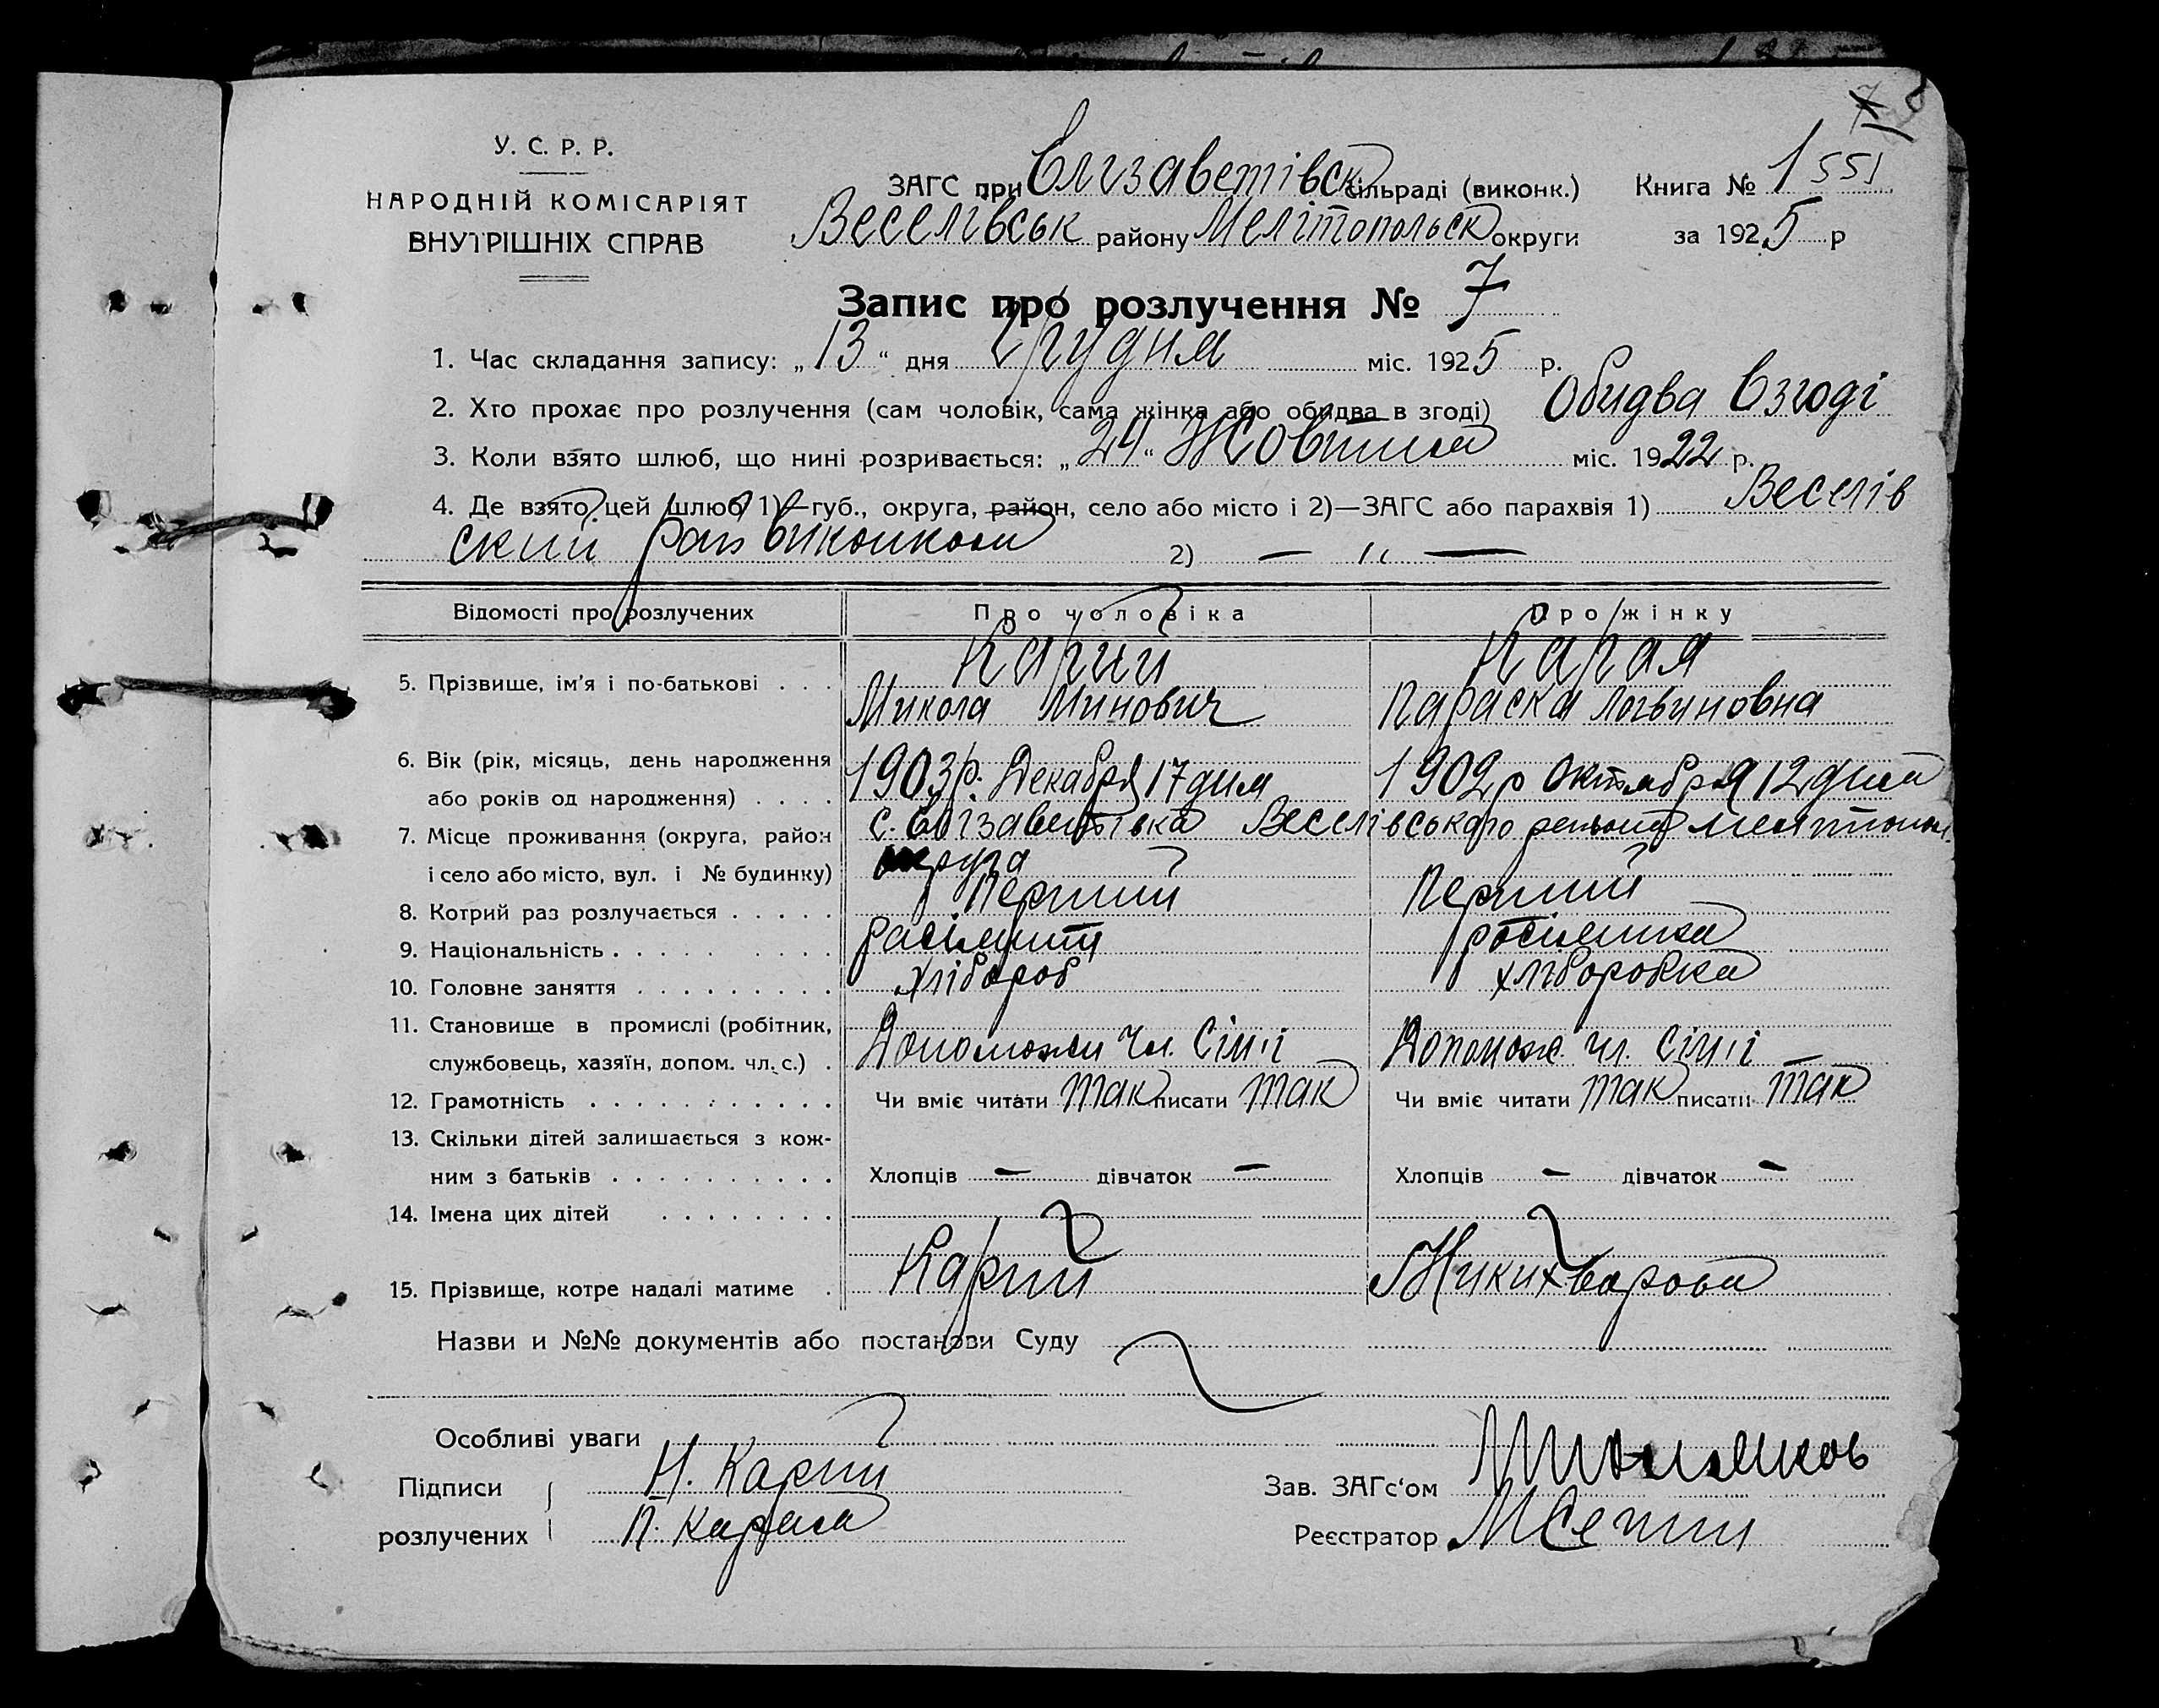 У. С. Р. Р.
НАРОДНІЙ КОМІСАРІЯТ
ВНУТРІШНІХ СПРАВ
ЗАГС при Єлизаветівск сільраді (виконк.) Книга № 1 551
Веселівськ району Мелітопольск округи за 1925 р
Запис про розлучення № 7
1. Час складання запису: „13“ дня Грудня міс. 1925 р.
2. Хто прохає про розлучення (сам чоловік, сама жінка або обидва в згоді) Обидва в згоді
3. Коли взято шлюб, що нині розривається: „24“ Жовтня міс. 1922 р.
4. Де взято цей шлюб 1)—губ., округа, район, село або місто і 2)—ЗАГС або парахвія 1) Веселів
ский рай виконком 2) — „ —
Відомості про розлучених Про чоловіка Про жінку
5. Прізвище, ім’я і по-батькові . . . Карий Карая
Микола Минович Параска Логвиновна
6. Вік (рік, місяць, день народження 1903 р. Декабря 17 дня 1902 р Октября 12 дня
або років од народження) . . . .
7. Місце проживання (округа, район с. Єлізаветівка Веселівського
і село або місто, вул. і № будинку) округа
8. Котрий раз розлучається . . . . . Перший Перший
9. Національність . . . . . . . .
10. Головне заняття . . . . . . . . . хлібороб хліборобка
11. Становище в промислі (робітник,
службовець, хазяїн, допом. чл. с.) . Допоможи чл. сімії Допомож. чл. сімії
12. Грамотність . . . . . . . . . . . Чи вміє читати так писати так Чи вміє читати так писати так
13. Скільки дітей залишається з кож-
ним з батьків . . . . . . . . . . Хлопців — дівчаток — Хлопців — дівчаток —
14. Імена цих дітей . . . . . . . .
15. Прізвище, котре надалі матиме . Карий Никихварова
Назви и №№ документів або постанови Суду
Особливі уваги
Підписи Н. Карий Зав. ЗАГс‘ом
розлучених П. Карая Реєстратор